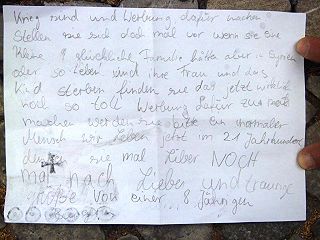 Krieg sind und Werbung dafür machen?
Stellen sie sich doch mal vor wenn sie eine
kleine glückliche Familie hätten aber in Syrien
oder so leben und ihre Frau und das
Kind sterben finden sie das jetzt wirklich
noch so toll Werbung dafür zu
machen werden sie bitte ein normaler
Mensch wir Leben jetzt im 21 Jahrhundert
denken sie mal lieber NOCH
mal nach Liebe und traurige
größe von einer 8 Jährigen